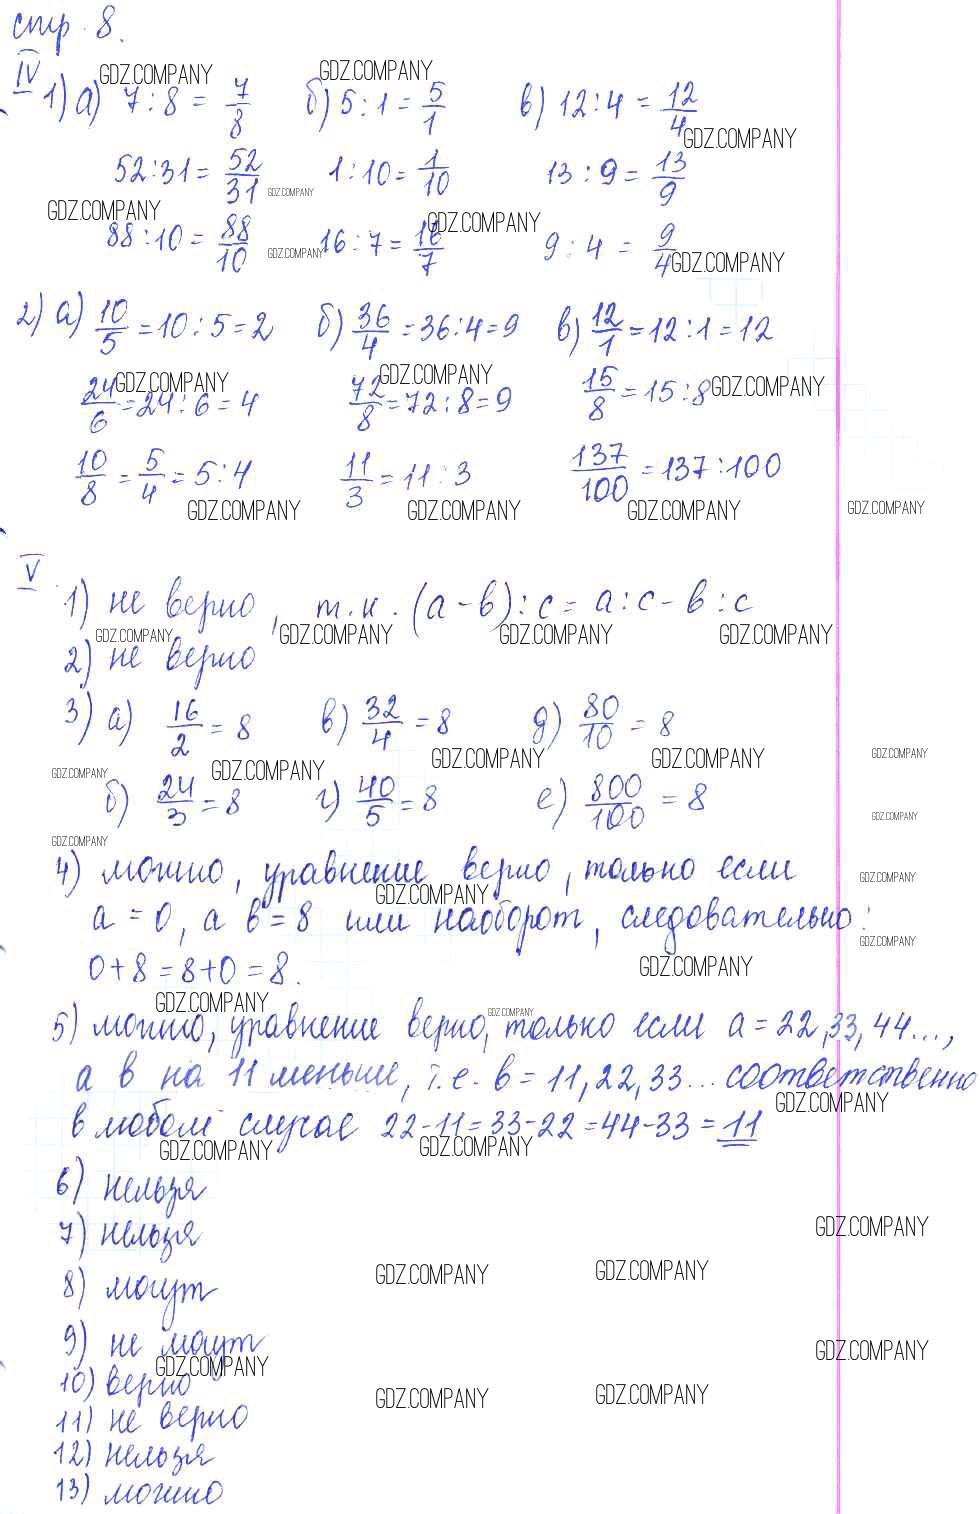 стр. 8.
IV 1) а) 7 : 8 = 7/8 б) 5 : 1 = 5/1 в) 12 : 4 = 12/4
52 : 31 = 52/31 1 : 10 = 1/10 13 : 9 = 13/9
88 : 10 = 88/10 16 : 7 = 16/7 9 : 4 = 9/4
2) а) 10/5 = 10 : 5 = 2 б) 36/4 = 36 : 4 = 9 в) 12/1 = 12 : 1 = 12
24/6 = 24 : 6 = 4 72/8 = 72 : 8 = 9 15/8 = 15 : 8
10/8 = 5/4 = 5 : 4 11/3 = 11 : 3 137/100 = 137 : 100
V 1) не верно, т.к. (а - в) : с = а : с - в : с
2) не верно
3) а) 16/2 = 8 в) 32/4 = 8 д) 80/10 = 8
б) 24/3 = 8 г) 40/5 = 8 е) 800/100 = 8
4) можно, уравнение верно, только если
а = 0, а в = 8 или наоборот, следовательно:
0 + 8 = 8 + 0 = 8.
5) можно, уравнение верно, только если а = 22, 33, 44...,
а в на 11 меньше, т.е. в = 11, 22, 33... соответственно
в любом случае 22 - 11 = 33 - 22 = 44 - 33 = 11
6) нельзя
7) нельзя
8) могут
9) не могут
10) верно
11) не верно
12) нельзя
13) можно
GDZ.COMPANY